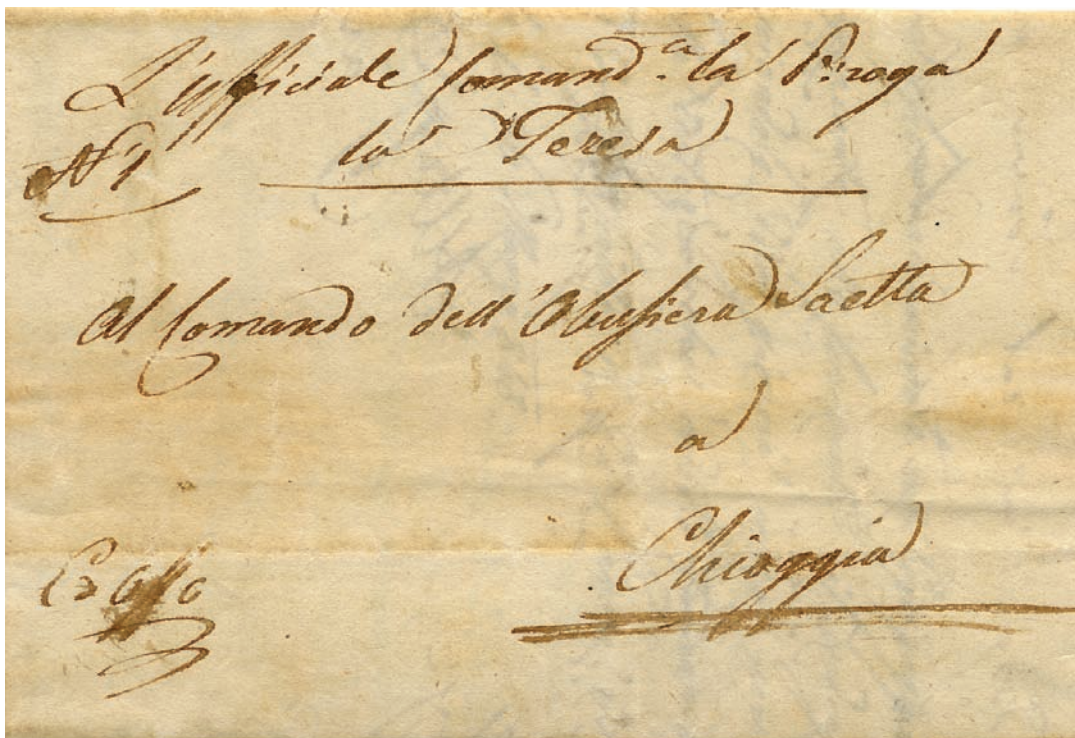 L'ufficiale Comand.ª la Piroga
N° 1 la Teresa
Al Comando dell' Obusiera Saetta
a
Chioggia
Ex Offo